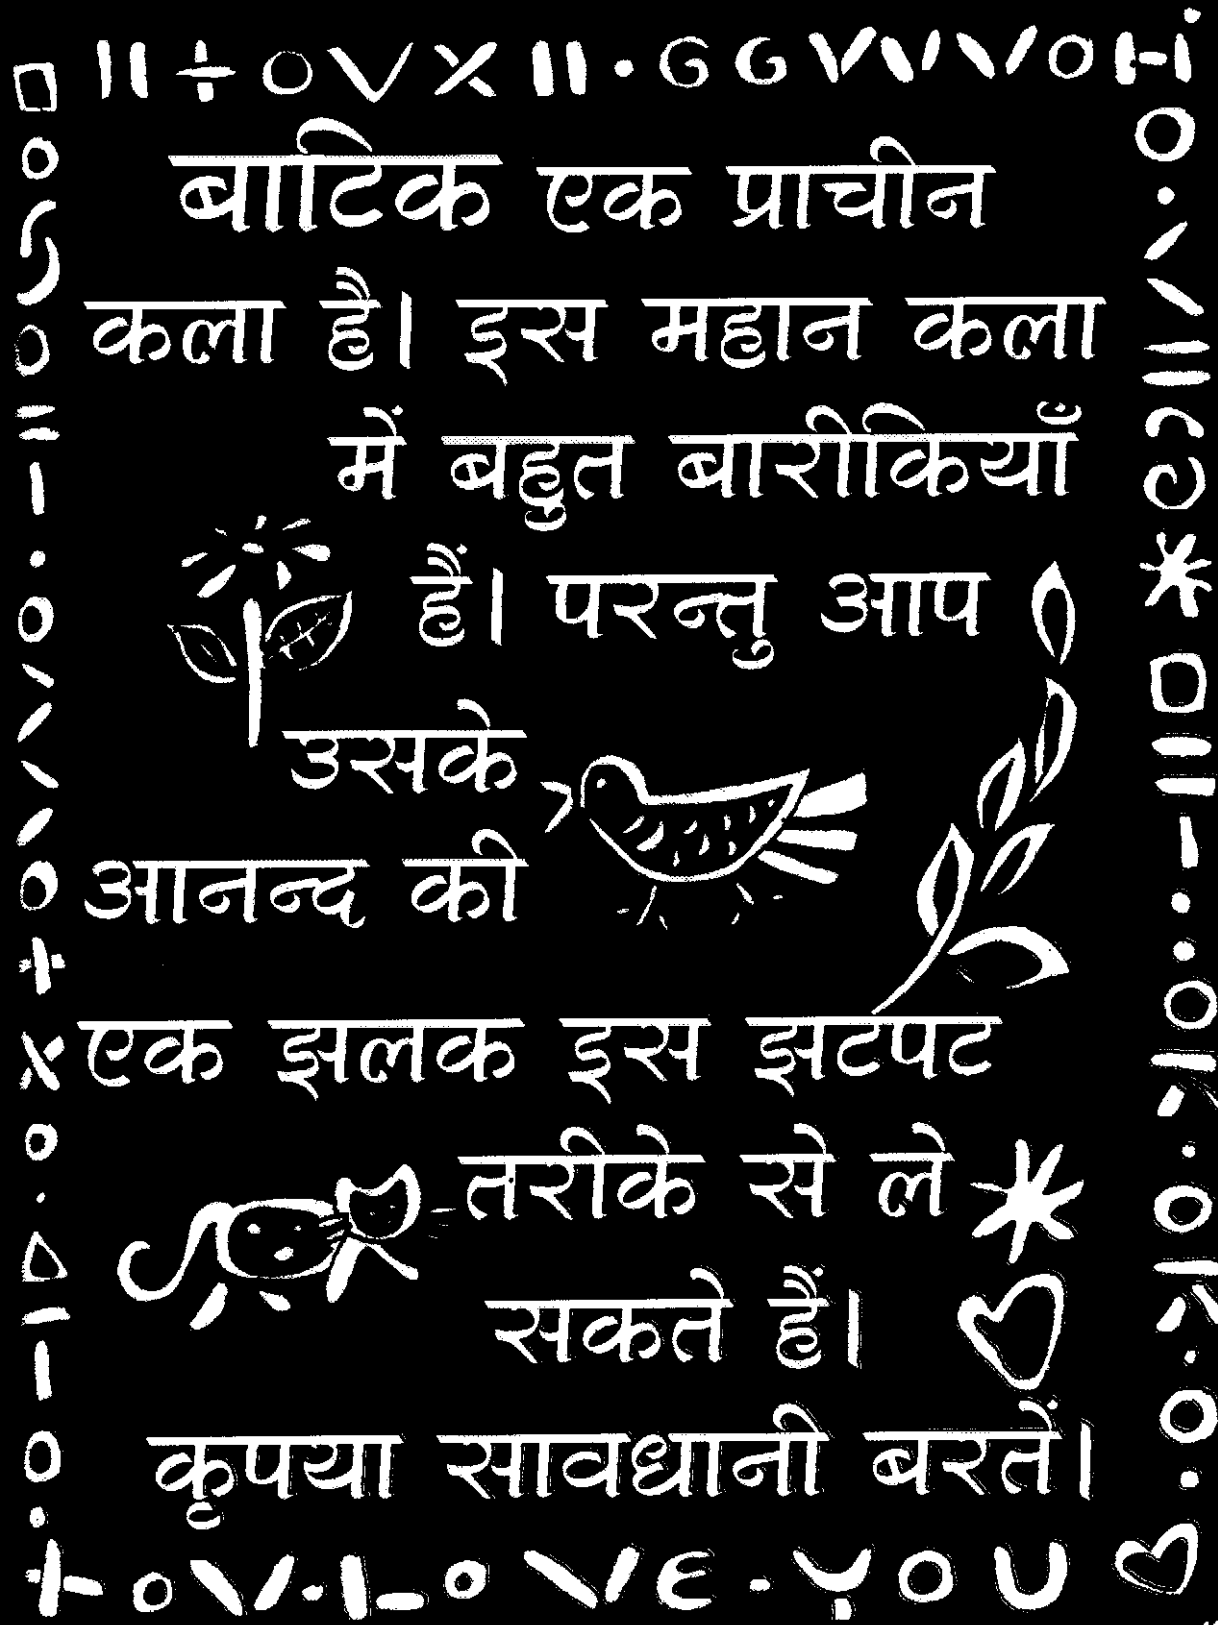 बाटिक एक प्राचीन
कला है। इस महान कला
में बहुत बारीकियाँ
हैं। परन्तु आप
उसके
आनन्द की
एक झलक इस झटपट
तरीके से ले
सकते हैं।
कृपया सावधानी बरतें।
LOVE YOU